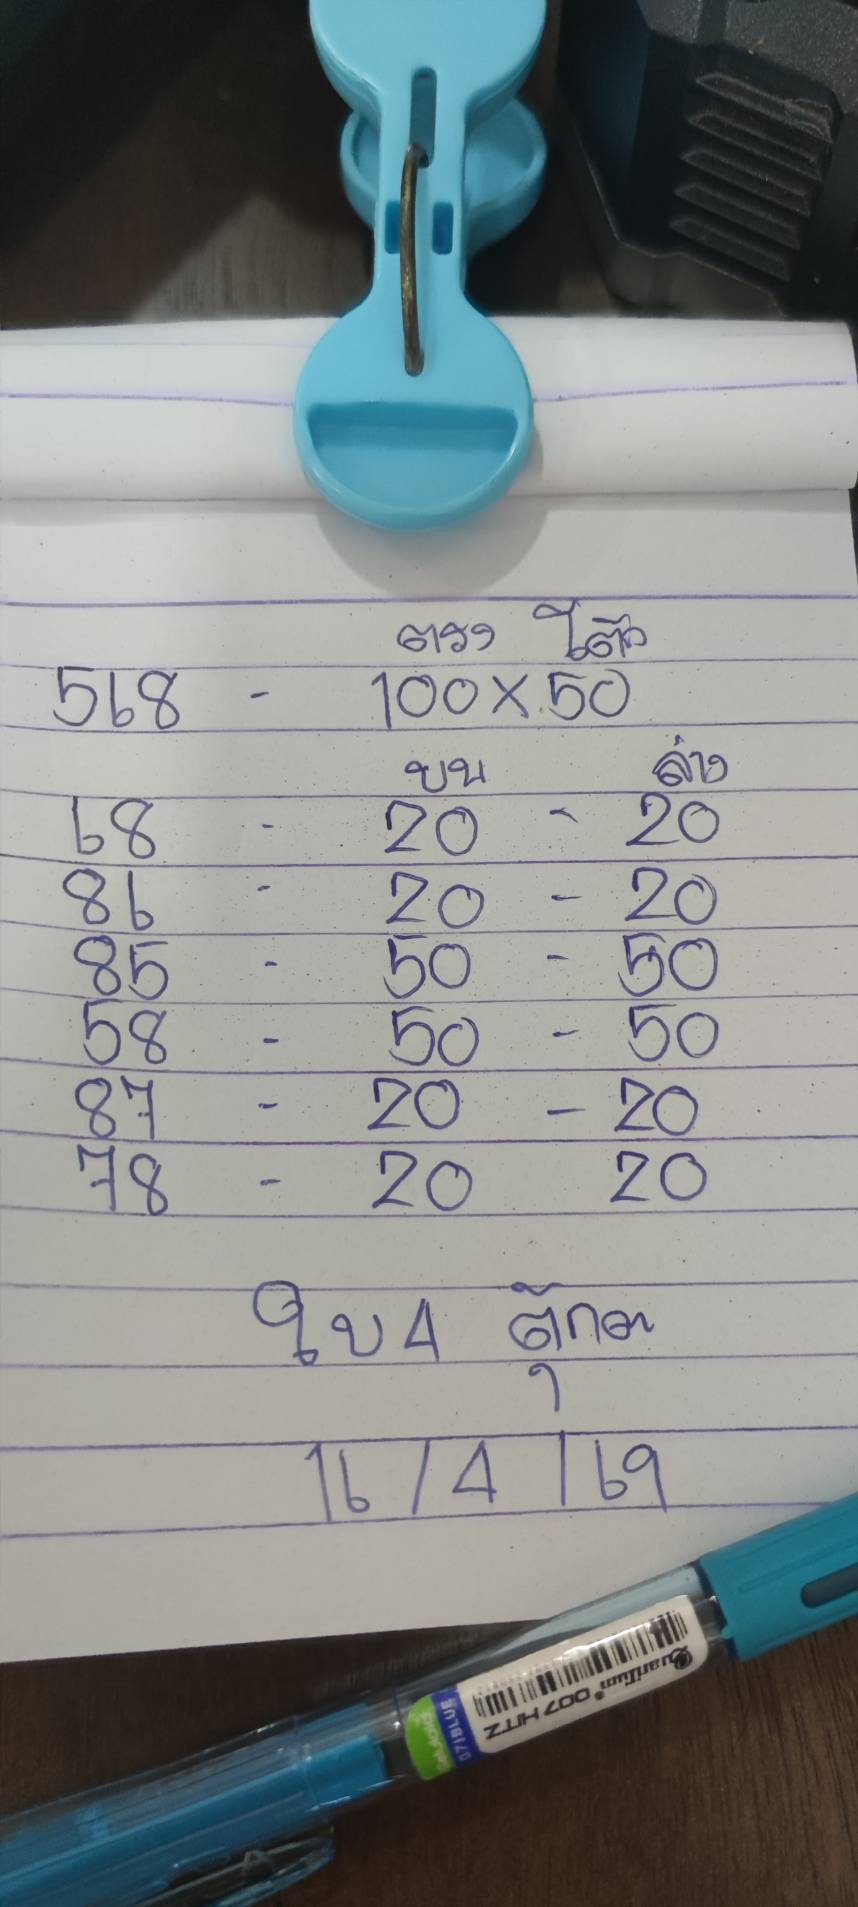 ตรง โต๊ด
568 - 100×50
บน ล่าง
68 - 20 - 20
86 - 20 - 20
85 - 50 - 50
58 - 50 - 50
87 - 20 - 20
78 - 20 20
ใบ4 ตุ๊กตา
16/4/69
Quantum 007 HITZ
07/BLUE